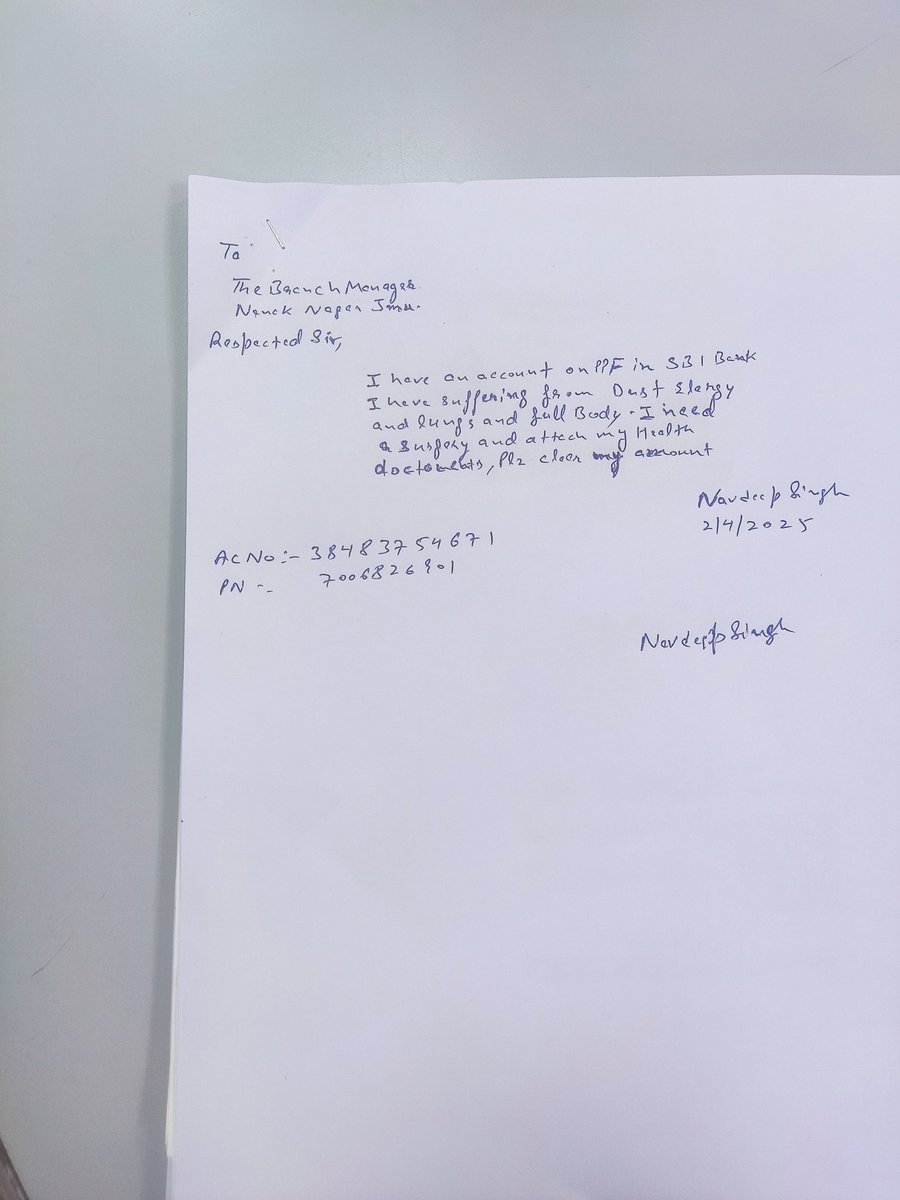 To
The Branch Manager
Nanak Nagar Jmu.
Respected Sir,
I have an account on PPF in SBI Bank
I have suffering from Dust Elergy
and lungs and full Body. I need
a surgery and attech my Health
doctoments, Plz clear my amount
Navdeep Singh
2/4/2025
Ac No :- 38483754671
PN :- 7006826901
Navdeep Singh